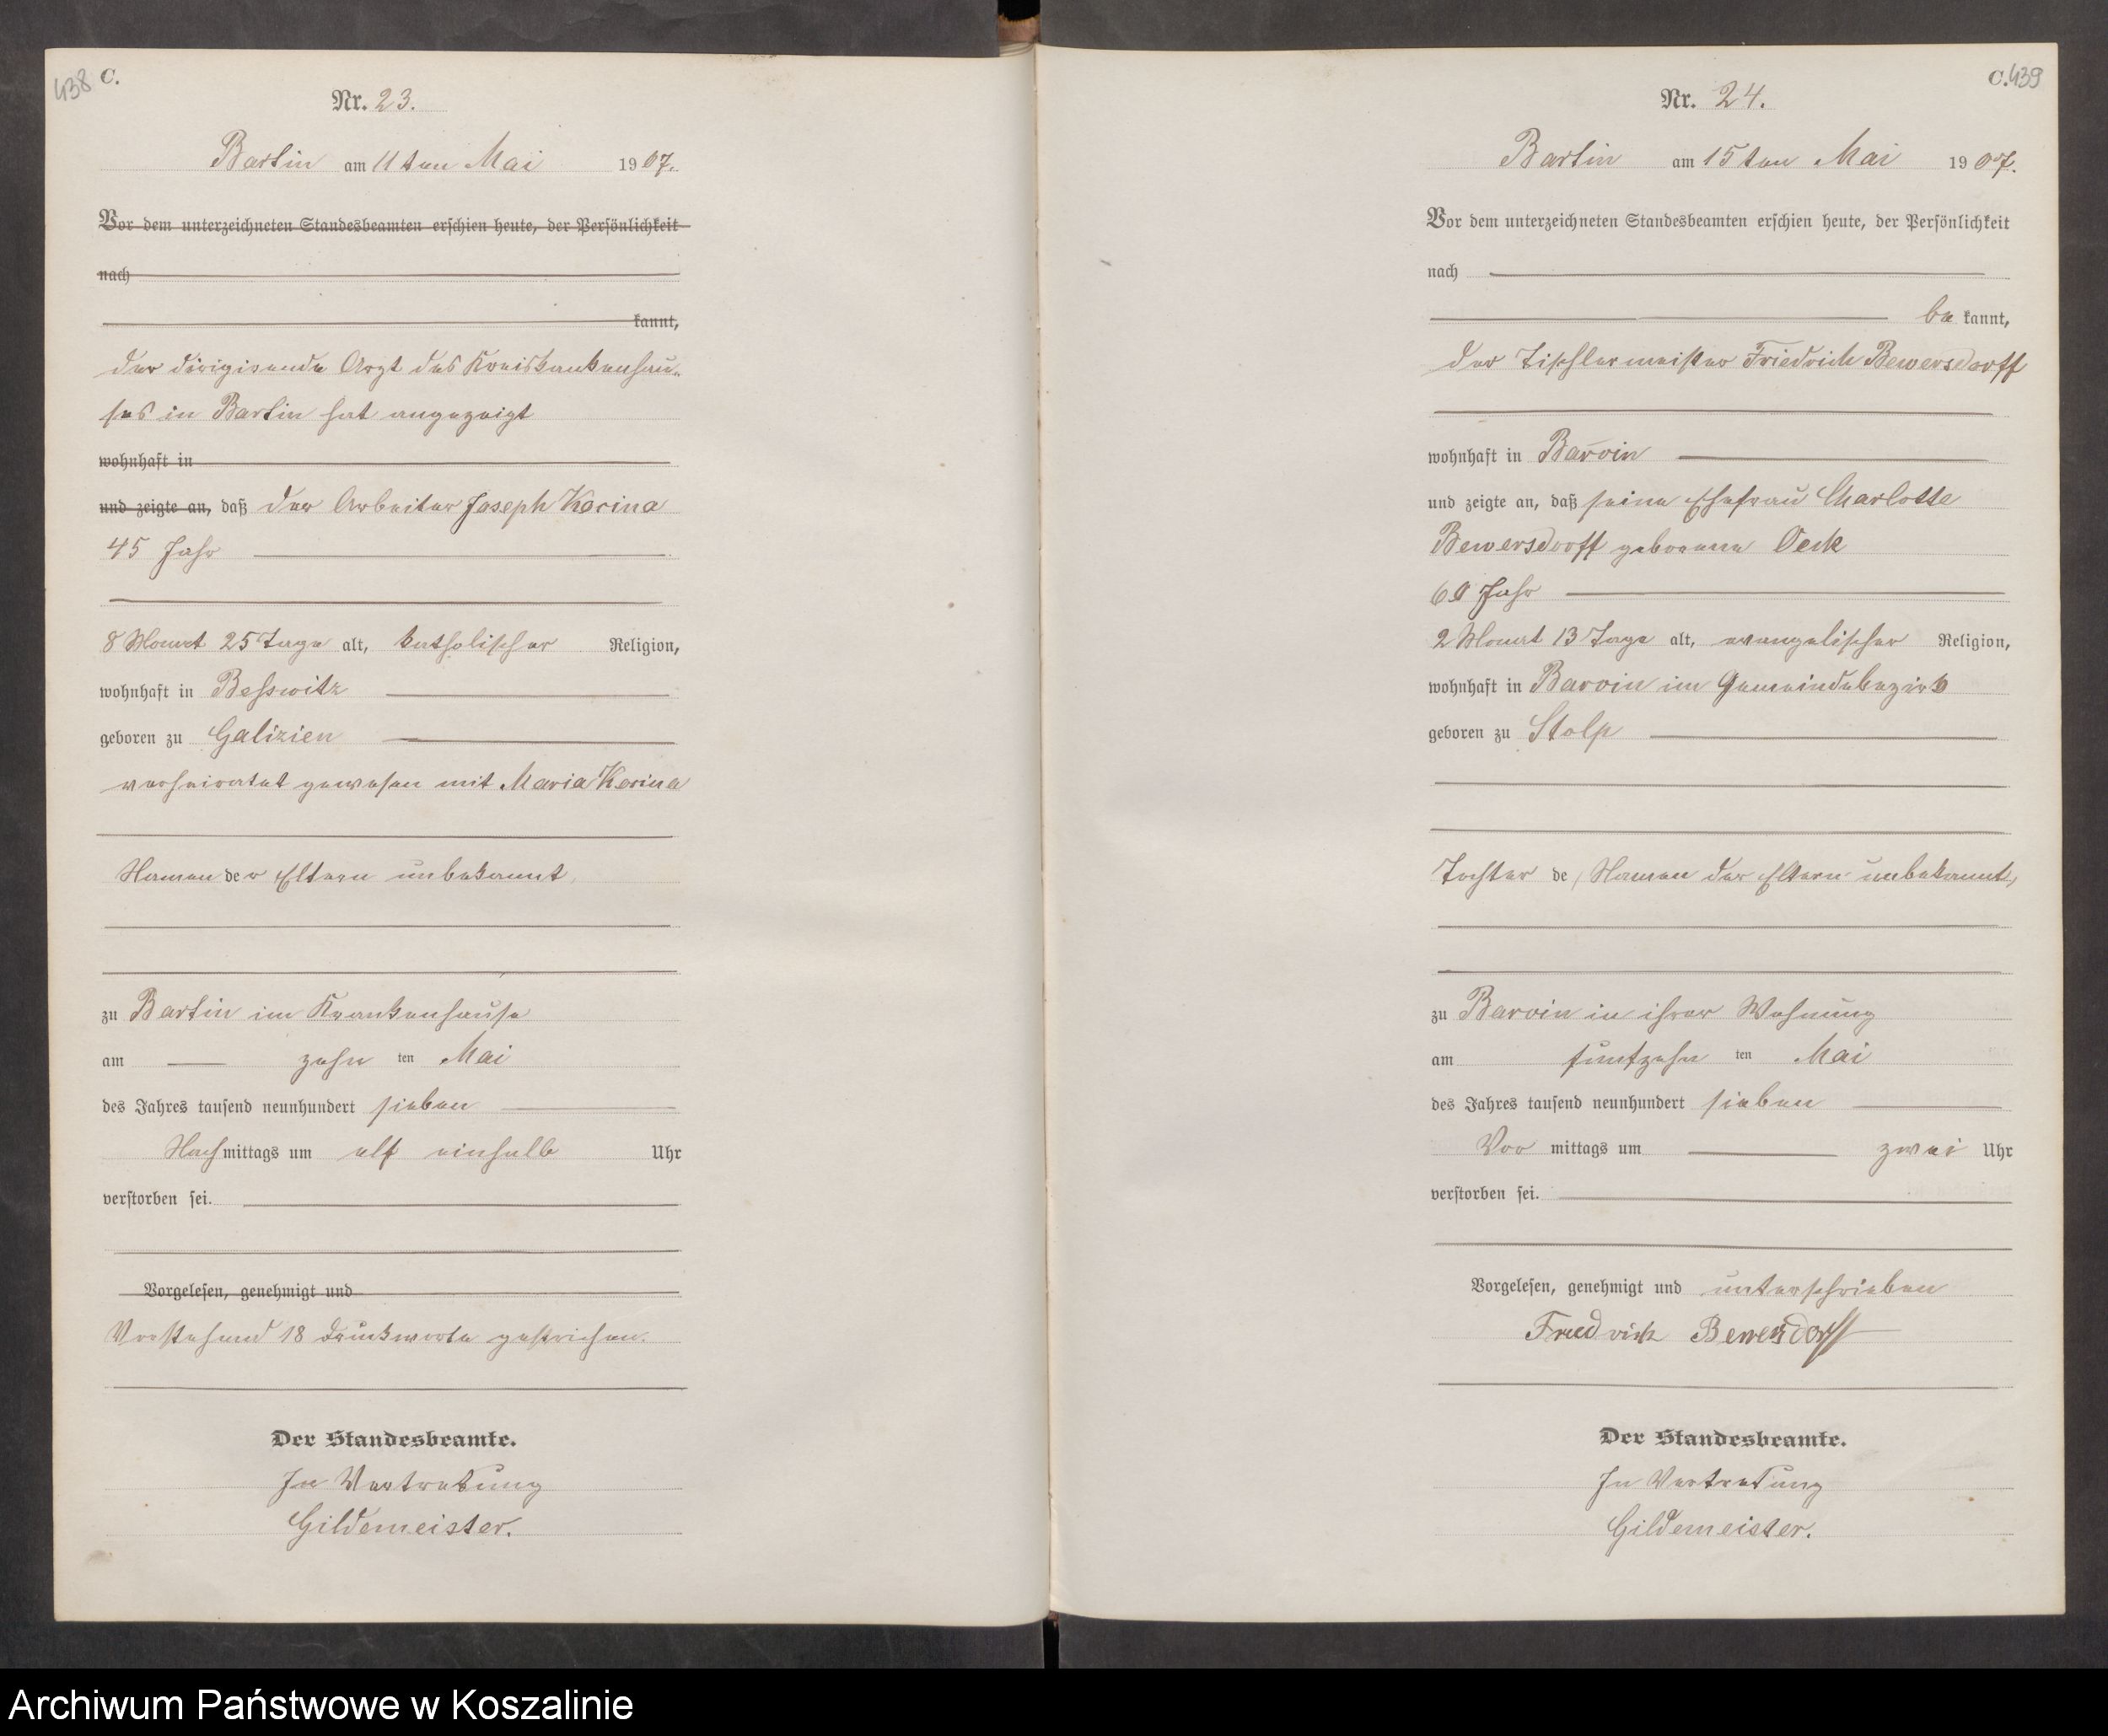 438 C.
Nr. 23.
Bartin am 11ten Mai 1907.
Vor dem unterzeichneten Standesbeamten erschien heute, der Persönlichkeit
nach
kannt,
der dirigirende Arzt des Kreiskrankenhau-
ses in Bartin hat angezeigt
wohnhaft in
und zeigte an, daß der Arbeiter Joseph Korina
45 Jahr
8 Monat 25 Tage alt, katholischer Religion,
wohnhaft in Besswitz
geboren zu Galizien
verheiratet gewesen mit Maria Korina
Namen der Eltern unbekannt,
zu Bartin im Krankenhause
am zehn ten Mai
des Jahres tausend neunhundert sieben
Nachmittags um elf einhalb Uhr
verstorben sei.
Vorgelesen, genehmigt und
Vorstehend 18 Druckworte gestrichen.
Der Standesbeamte.
In Vertretung
Gildemeister.
C. 439
Nr. 24.
Bartin am 15ten Mai 1907.
Vor dem unterzeichneten Standesbeamten erschien heute, der Persönlichkeit
nach
be kannt,
der Tischlermeister Friedrich Bewersdorff
wohnhaft in Barvin
und zeigte an, daß seine Ehefrau Charlotte
Bewersdorff geborene Oeck
60 Jahr
2 Monat 13 Tage alt, evangelischer Religion,
wohnhaft in Barvin im Gemeindebezirk
geboren zu Stolp
Tochter de, Namen der Eltern unbekannt,
zu Barvin in ihrer Wohnung
am fünfzehn ten Mai
des Jahres tausend neunhundert sieben
Vor mittags um zwei Uhr
verstorben sei.
Vorgelesen, genehmigt und unterschrieben
Friedrich Bewersdorff
Der Standesbeamte.
In Vertretung
Gildemeister.
Archiwum Państwowe w Koszalinie